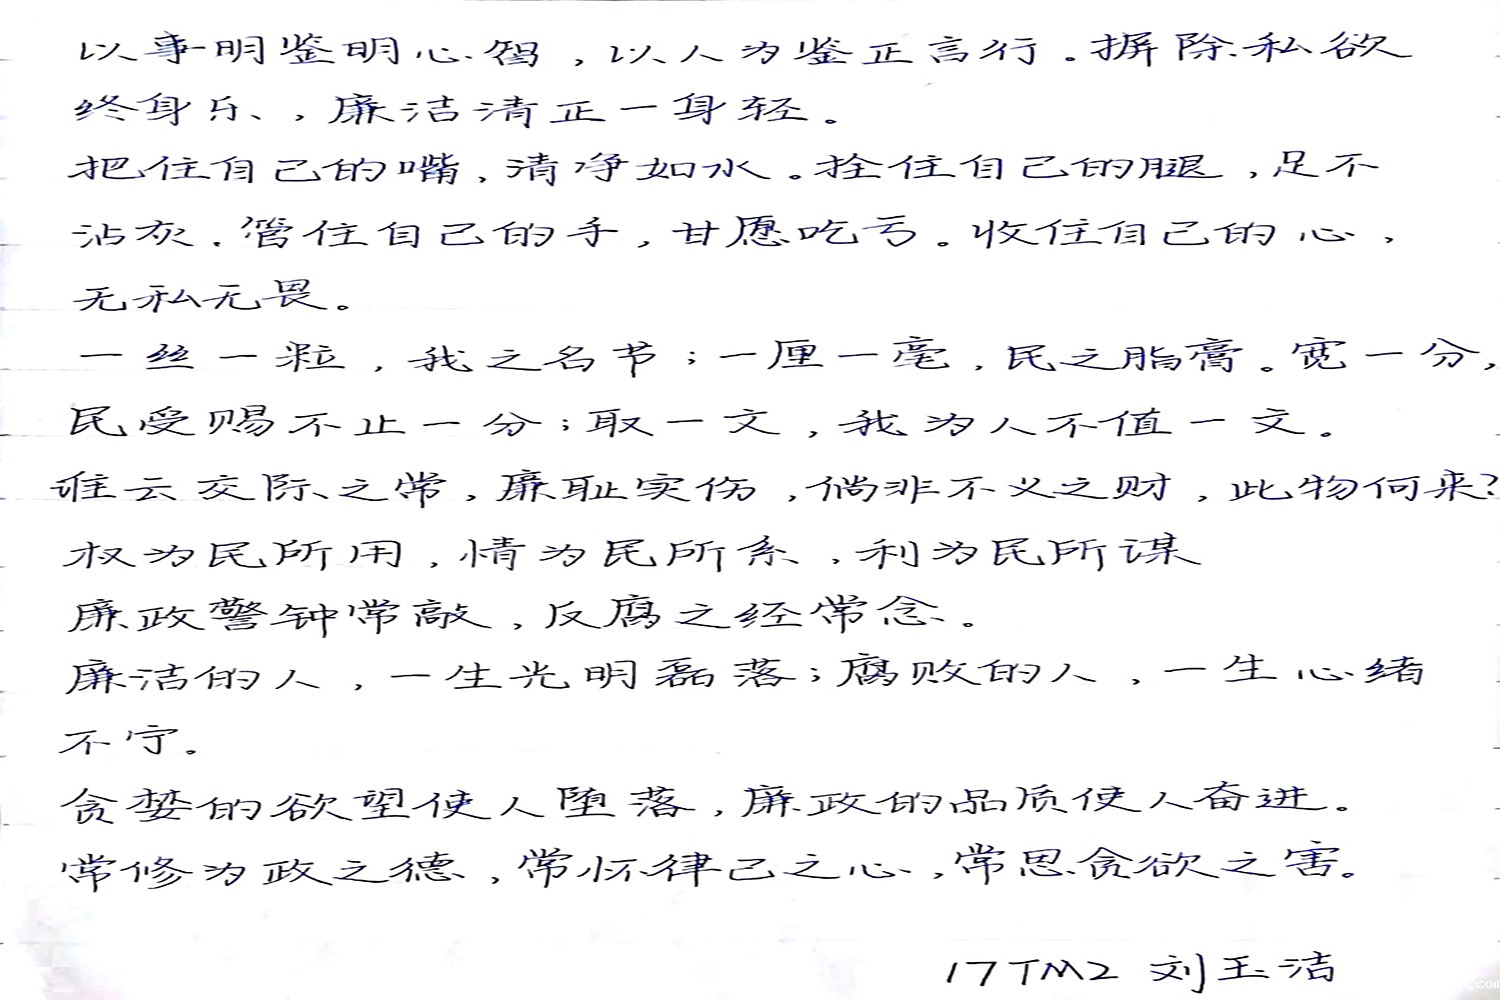 以事明鉴明心智，以人为鉴正言行。摒除私欲
终身乐，廉洁清正一身轻。
把住自己的嘴，清净如水。拴住自己的腿，足不
沾灰．管住自己的手，甘愿吃亏。收住自己的心，
无私无畏。
一丝一粒，我之名节；一厘一毫，民之脂膏。宽一分，
民受赐不止一分；取一文，我为人不值一文。
谁云交际之常，廉耻实伤，倘非不义之财，此物何来？
权为民所用，情为民所系，利为民所谋
廉政警钟常敲，反腐之经常念。
廉洁的人，一生光明磊落；腐败的人，一生心绪
不宁。
贪婪的欲望使人堕落，廉政的品质使人奋进。
常修为政之德，常怀律己之心，常思贪欲之害。
17TM2 刘玉洁